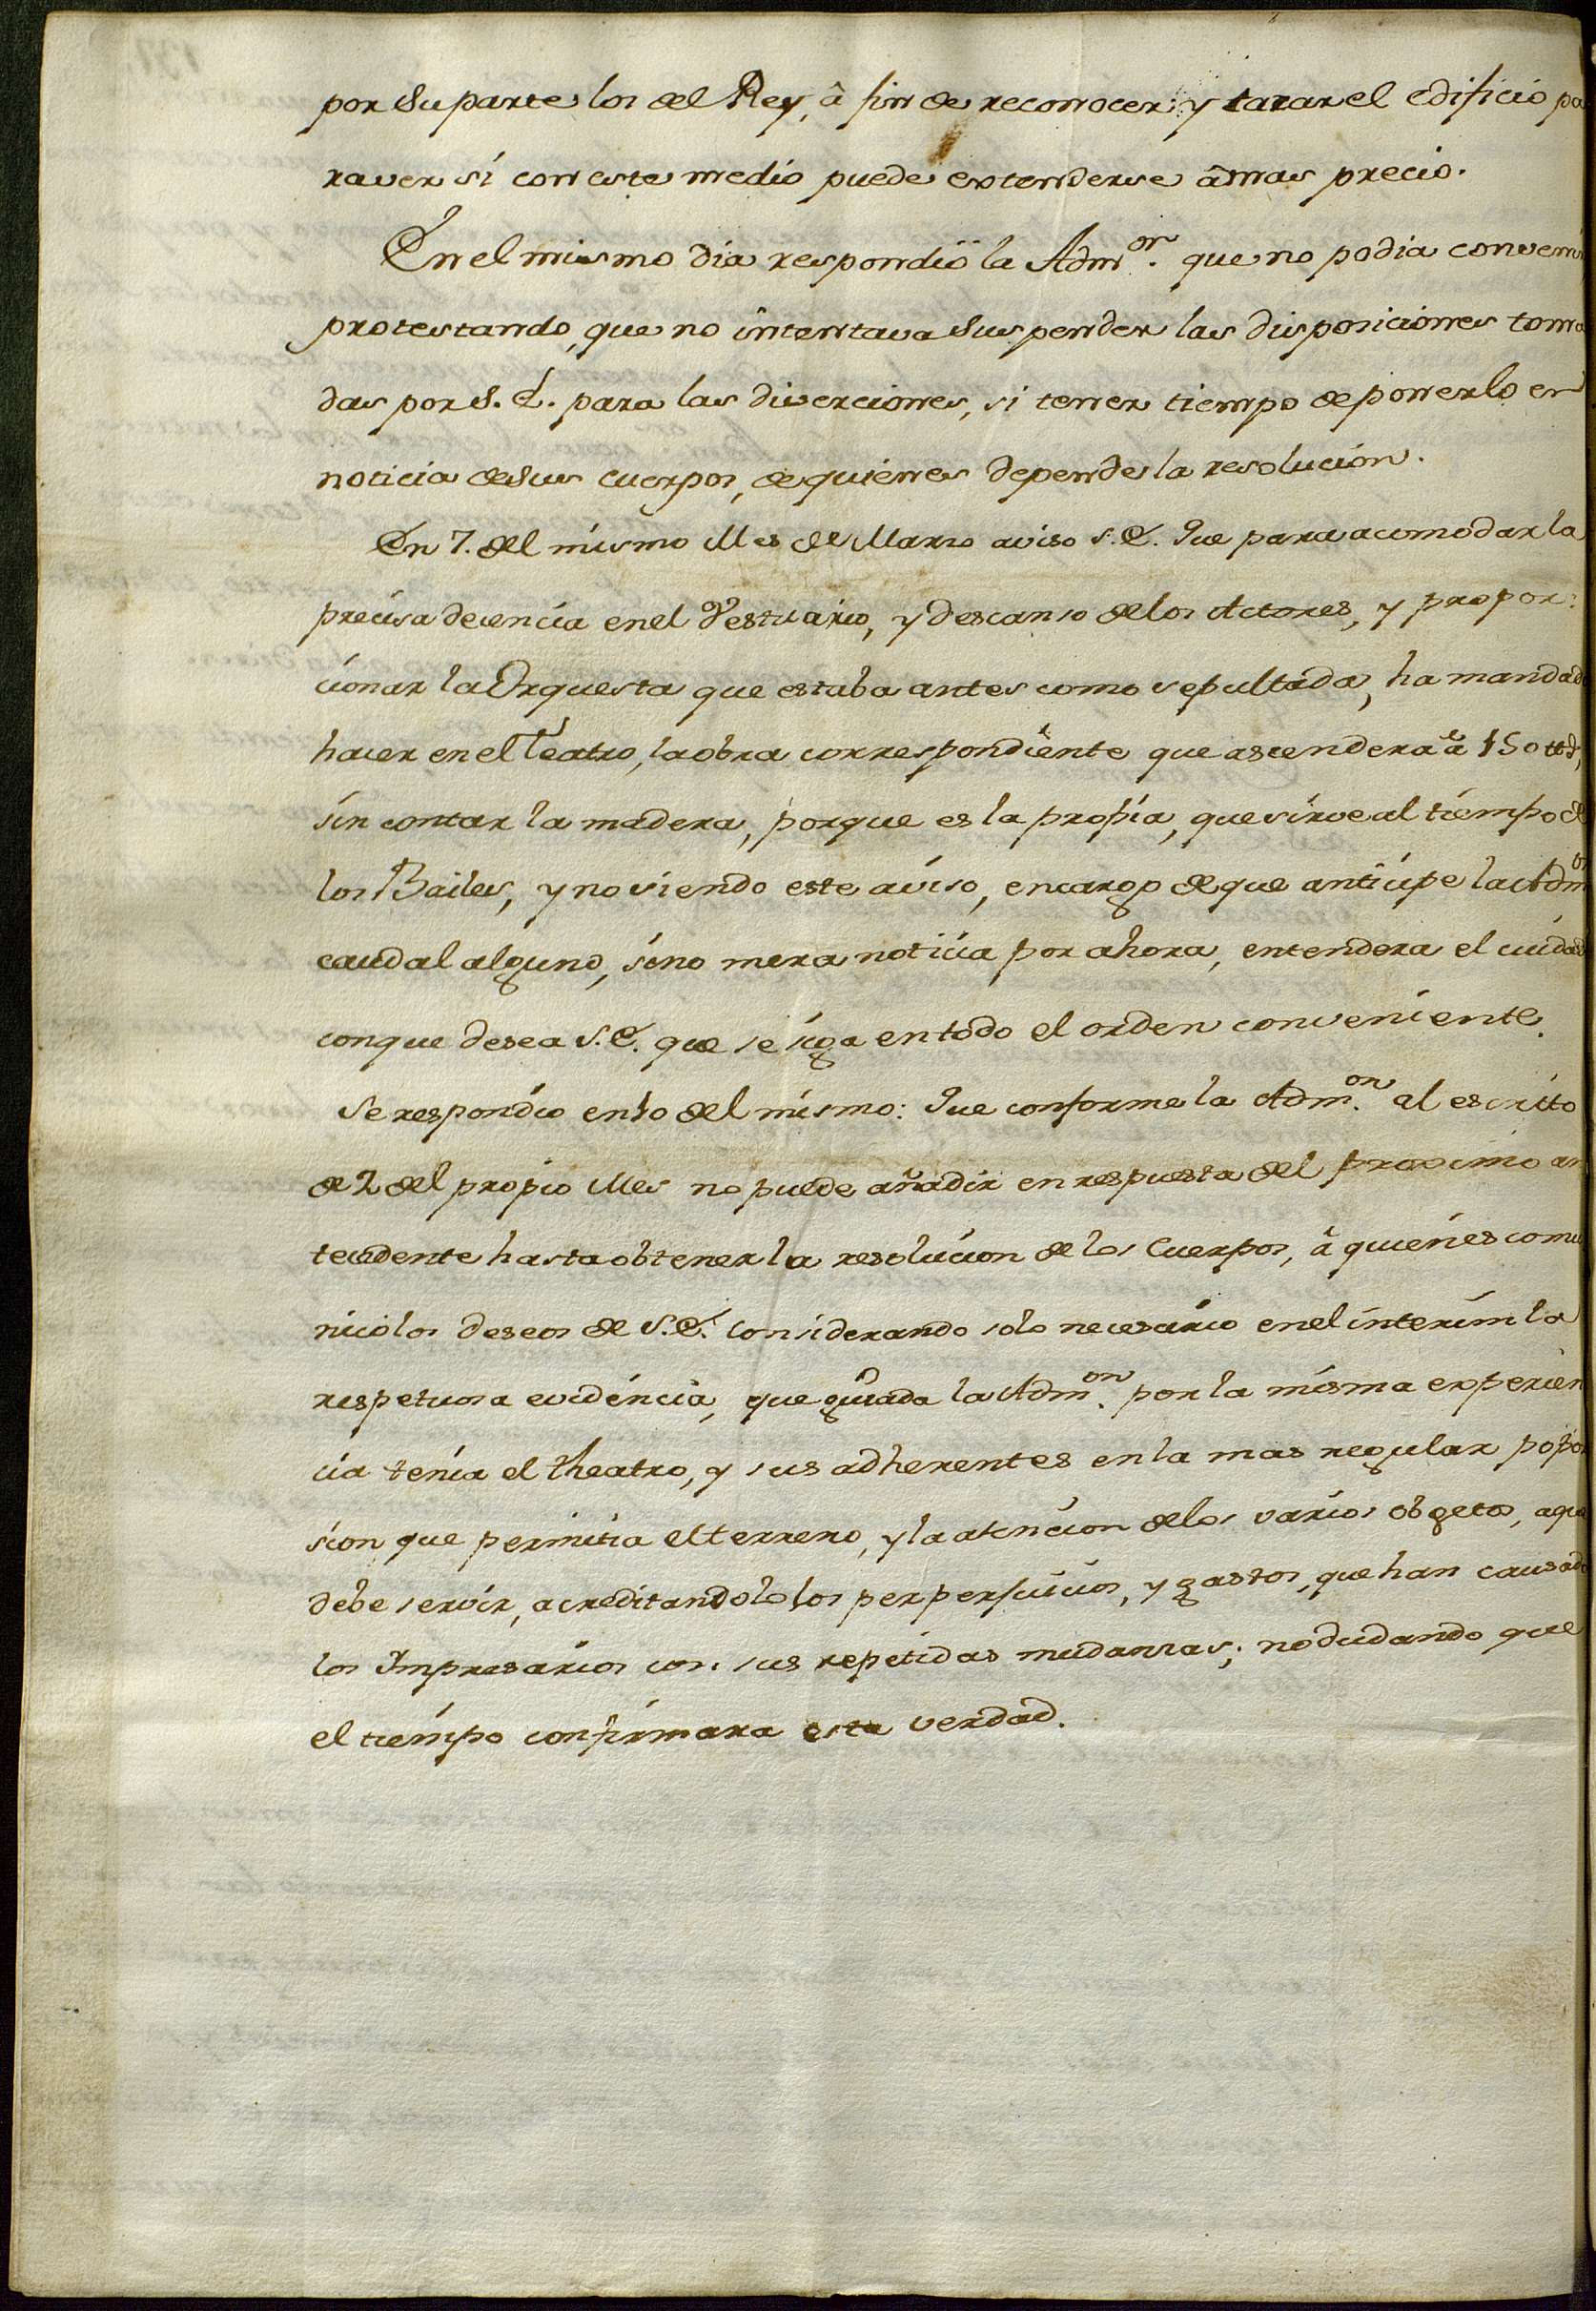 por su parte los del Rey, â fin de reconocer y taxar el edificio pa
ra ver si con este medio puede extenderse â mas precio.
En el mismo dia respondiô la Adm.on que no podia convenir
protestando, que no intentava suspender las disposiciones toma
das por S. E. para las diverciones, si tener tiempo de ponerlo en
noticia de sus cuerpos, de quienes depende la resolucion.
En 7. del mismo Mes de Marzo aviso S. E. Que para acomodar la
precisa decencia en el Vestuario, y descanso de los Actores, y propor:
cionar la Orquesta que estaba antes como sepultada, ha mandado
hacer en el Teatro, la obra correspondiente que ascendera â 150
sin contar la madera, porque es la propia, que sirve al tiempo de
los Bailes, y no siendo este aviso, encargo de que anticipe la Adm.on
caudal alguno, sino mera noticia por ahora, entendera el cuidado
conque desea S. E. que se siga en todo el orden conveniente.
Se respondio en 10 del mismo: Que conforme la Adm.on al escrito
de 2 del propio Mes no puede añadir en respuesta del proximo an
tecedente hasta obtener la resolucion de los Cuerpos, â quienes comu
nico los deseos de S. E. Considerando solo necesario en el interim la
respetuosa evidencia, que guiada la Adm.on por la misma experien
cia tenia el theatro, y sus adherentes en la mas regular popor
sion que permitia el terreno, y la atencion de los varios obgetos, a que
debe servir, acreditandolo los perperjuicios, y gastos, que han causado
los Impresarios con sus repetidas mudanzas; no dudando que
el tiempo confirmara esta verdad.